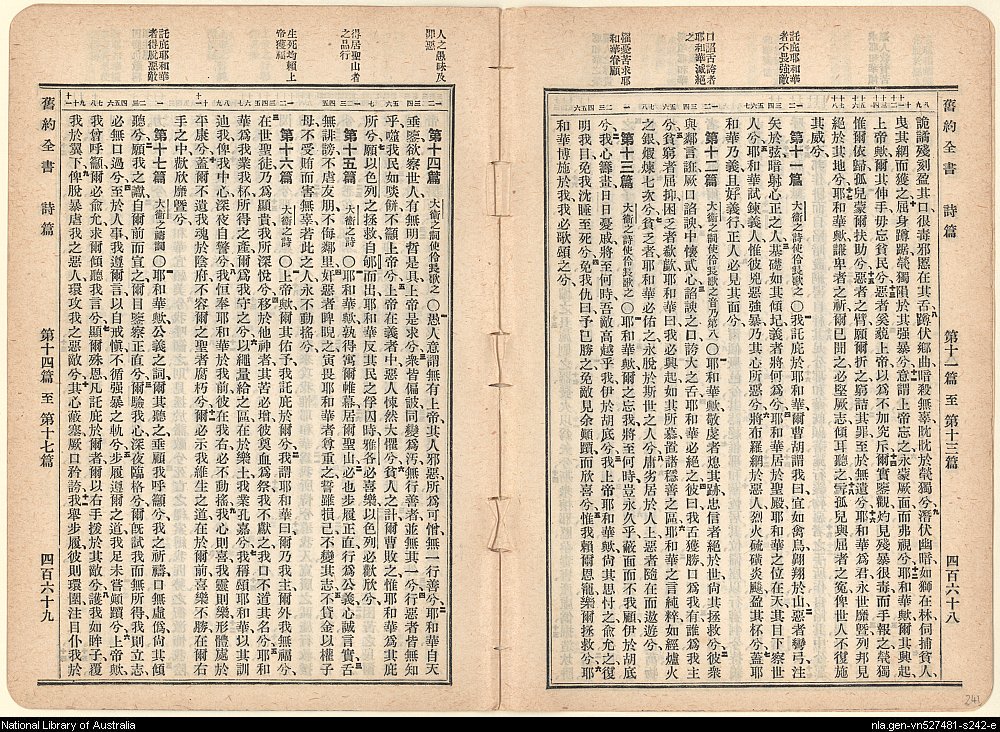 舊約全書 詩篇 第十一篇至第十三篇 四百六十八
詭譎殘刻盈其口很毒邪慝在其舌蹲伏鄉曲暗殺無辜眈眈於煢獨兮潛伏幽暗如獅在林伺捕貧人
曳其網而獲之屈身蹲踞煢獨隕於其強暴兮意謂上帝忘之永蒙厥面而弗視兮耶和華歟爾其興起
上帝歟爾其伸手毋忘貧民兮惡者奚藐上帝以爲不加究斥爾實鑒觀灼見殘暴很毒而手報之煢獨
惟爾依歸孤兒蒙爾扶助兮惡者之臂願爾折之窮詰其罪至於無遺兮耶和華爲君永世靡曁列邦見
絕於其地兮耶和華歟謙卑者之祈爾已聞之必堅厥志傾耳聽之雪孤兒與屈者之冤俾世人不復施
其威兮
第十一篇 大衞之詩使伶長歌之
〇我託庇於耶和華爾曹胡謂我曰宜如禽鳥翺翔於山惡者彎弓注
矢於弦暗射心正之人兮基礎如其傾圮義者將何爲兮耶和華居於聖殿耶和華之位在天其目下察世
人兮耶和華試鍊義人惟彼兇惡強暴乃其心所惡兮將布羅網於惡人烈火硫磺炎颷盈其杯兮蓋耶
和華乃義且好義行正人必見其面兮
第十二篇 大衞之詩使伶長歌之音乃第八
〇耶和華歟敬虔者熄其跡忠信者絕於世尚其拯救兮彼衆
與鄰言誑厥口諂諛中懷貳心諂諛之口誇大之舌耶和華必絕之彼曰我舌獲勝口爲我有誰爲我主
兮貧窮者屈抑困乏者欷歔耶和華曰我必興起如其所慕置諸穩善之區耶和華之言純粹如經爐火
之銀煆煉七次兮貧乏者耶和華必佑之永脫於斯世之人兮庸劣居於人上惡者隨在而遨遊兮
第十三篇 大衞之詩使伶長歌之
〇耶和華歟爾之忘我將至何時豈永久乎蔽面而不我顧伊於胡底
兮我心籌畫日日憂戚將至何時吾敵高越乎我伊於胡底兮我上帝耶和華歟尚其思忖之俞允之復
明我目免我沈睡至死兮免我仇曰予已勝之免敵見余顚蹟而欣喜兮惟我賴爾恩寵樂爾拯救兮耶
和華博施於我我必歌頌之兮
託庇耶和華者不畏強敵
口諂舌誇者耶和華滅絕之
懼憂苦求耶和華眷顧
人之愚昧及邪惡
得居聖山者之品行
生死均賴上帝獲福
託庇耶和華者得脫惡敵
第十四篇 大衞之詩使伶長歌之
〇愚人意謂無有上帝其人邪惡所爲可憎無一行善兮耶和華自天
垂鑒欲察世人有無明哲是具上帝是求兮衆皆偏詖同變爲汚無行善者並無其一兮行惡者皆無知
乎噬我民如啖餅不籲上帝兮上帝在義者中惡人悚然大懼兮貧人之計爾曹敗之惟耶和華爲其庇
所兮願以色列之拯救自郇而出耶和華反其民之俘囚時雅各必喜樂以色列必歡欣兮
第十五篇 大衞之詩
〇耶和華歟孰得寓爾帷幕居爾聖山必也步履正直行爲公義心誠言實舌
無誹謗不虐友朋不侮鄰里奸惡者睥睨之寅畏耶和華者尊重之誓雖損已不變其志不貸金以權子
母不受賄而害無辜若此之人永不動搖兮
第十六篇 大衞之詩
〇上帝歟爾其佑予我託庇於爾兮我謂耶和華曰爾乃我主爾外我無福兮
在世聖徒乃爲顯貴我所深悅兮移於他神者其苦必增彼奠血爲祭我不獻之我口不道其名兮耶和
華爲我業我杯所得之產爾爲我守之兮以繩量給之區在於樂土我業孔嘉兮我稱頌耶和華以其訓
迪我俾我中心深夜自警兮我恒奉耶和華於我前彼在我右必不動搖我心則喜我靈則樂形體處於
平康兮蓋爾不遺我魂於陰府不容爾之聖者腐朽兮爾必示我維生之道在於爾前喜樂不勝在爾右
手之中歡欣靡曁兮
第十七篇 大衞之禱詞
〇耶和華歟公義之詞爾其聽之垂顧我呼籲兮我之祈禱口無虛僞尚其傾
聽兮願我之讞自爾前而宣之爾目鑒察正直兮爾驗我心深夜臨格兮爾旣試我而無所得我則立志
必無口過兮至於人事我遵爾言以自戒愼不循強暴之軌兮步履遵爾之道我足未嘗顚躓兮上帝歟
我曾呼籲爾必俞允求爾傾聽我言兮顯爾殊恩凡託庇於爾者爾以右手拨於其敵兮護我如眸子覆
我於翼下俾脫暴虐我之惡人環攻我之惡敵兮其心蔽塞厥口矜誇我舉步履彼則環圍注目仆我於
舊約全書 詩篇 第十四篇至第十七篇 四百六十九
241
National Library of Australia
nla.gen-vn527481-s242-e